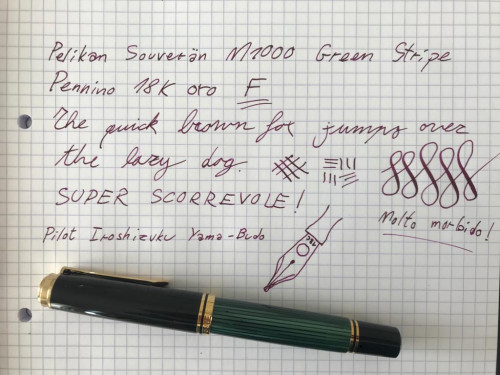 Pelikan Souverän M1000 Green Stripe
Pennino 18K oro F
The quick brown fox jumps over
the lazy dog.
SUPER SCORREVOLE!
Molto morbido!
Pilot Iroshizuku Yama-Budo